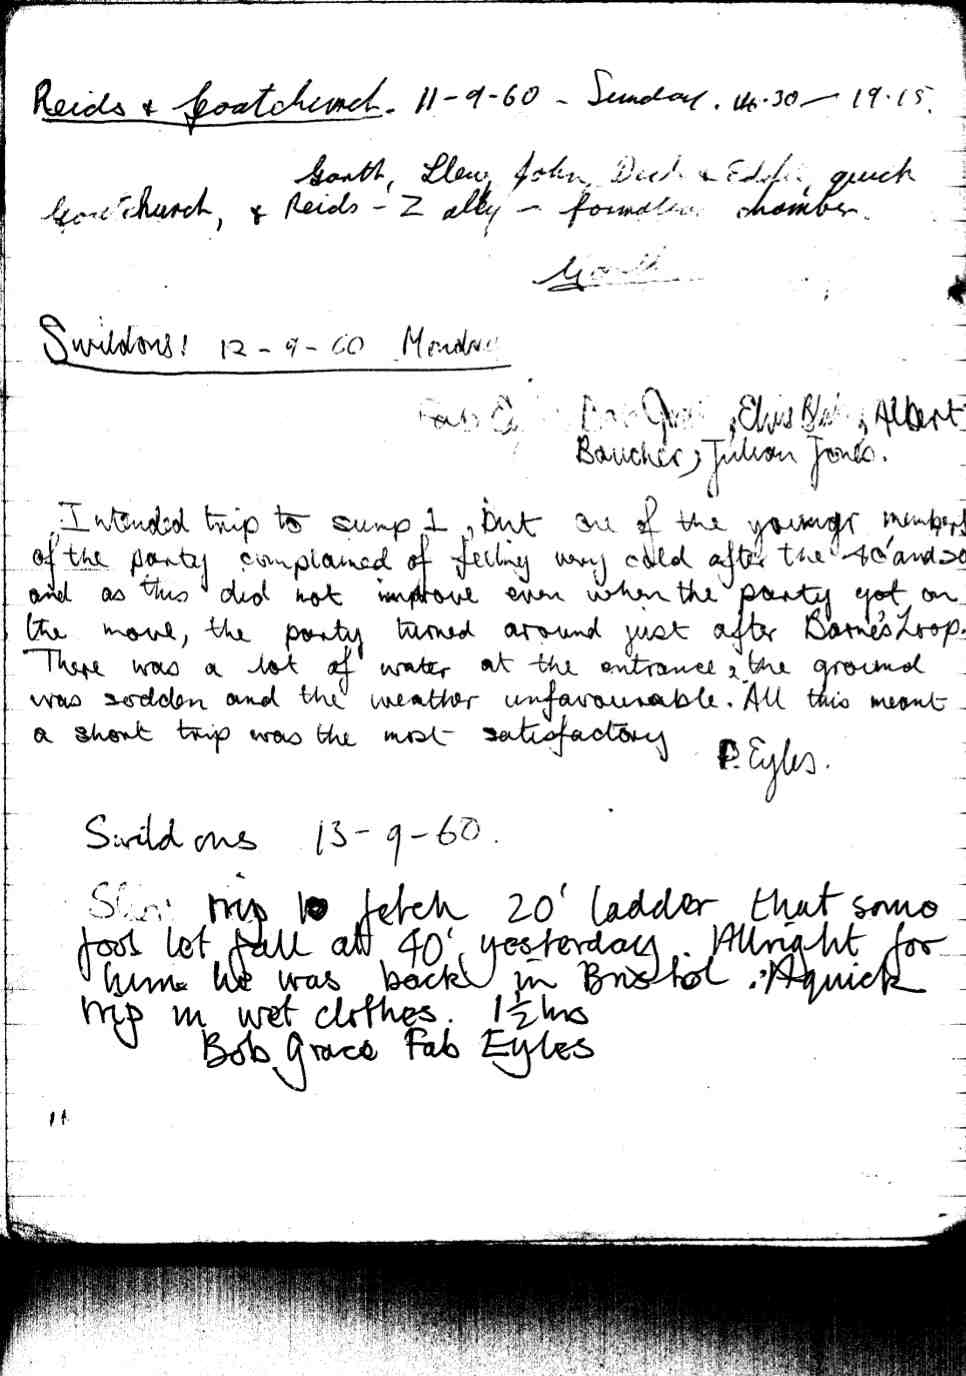 Reids & Goatchurch. 11-9-60 - Sunday. 14.30 — 19.15.
Garth, Llew, John, Dick & Eddie, quick
Goatchurch, & Reids - Z ally - formation chamber.
Garth
Swildons! 12-9-60 Monday
Fab Bob Grace, Elvis, Albert
Baucher, Julian Jones.
Intended trip to sump 1, but one of the younger members
of the party complained of feeling very cold after the 40' and 20
and as this did not improve even when the party got on
the move, the party turned around just after Barne's Loop.
There was a lot of water at the entrance, the ground
was sodden and the weather unfavourable. All this meant
a short trip was the most satisfactory
P. Eyles.
Swildons 13-9-60.
trip to fetch 20' ladder that some
fool let fall at 40' yesterday. Allright for
him he was back in Bristol. A quick
trip in wet clothes. 1½ hrs
Bob Grace Fab Eyles